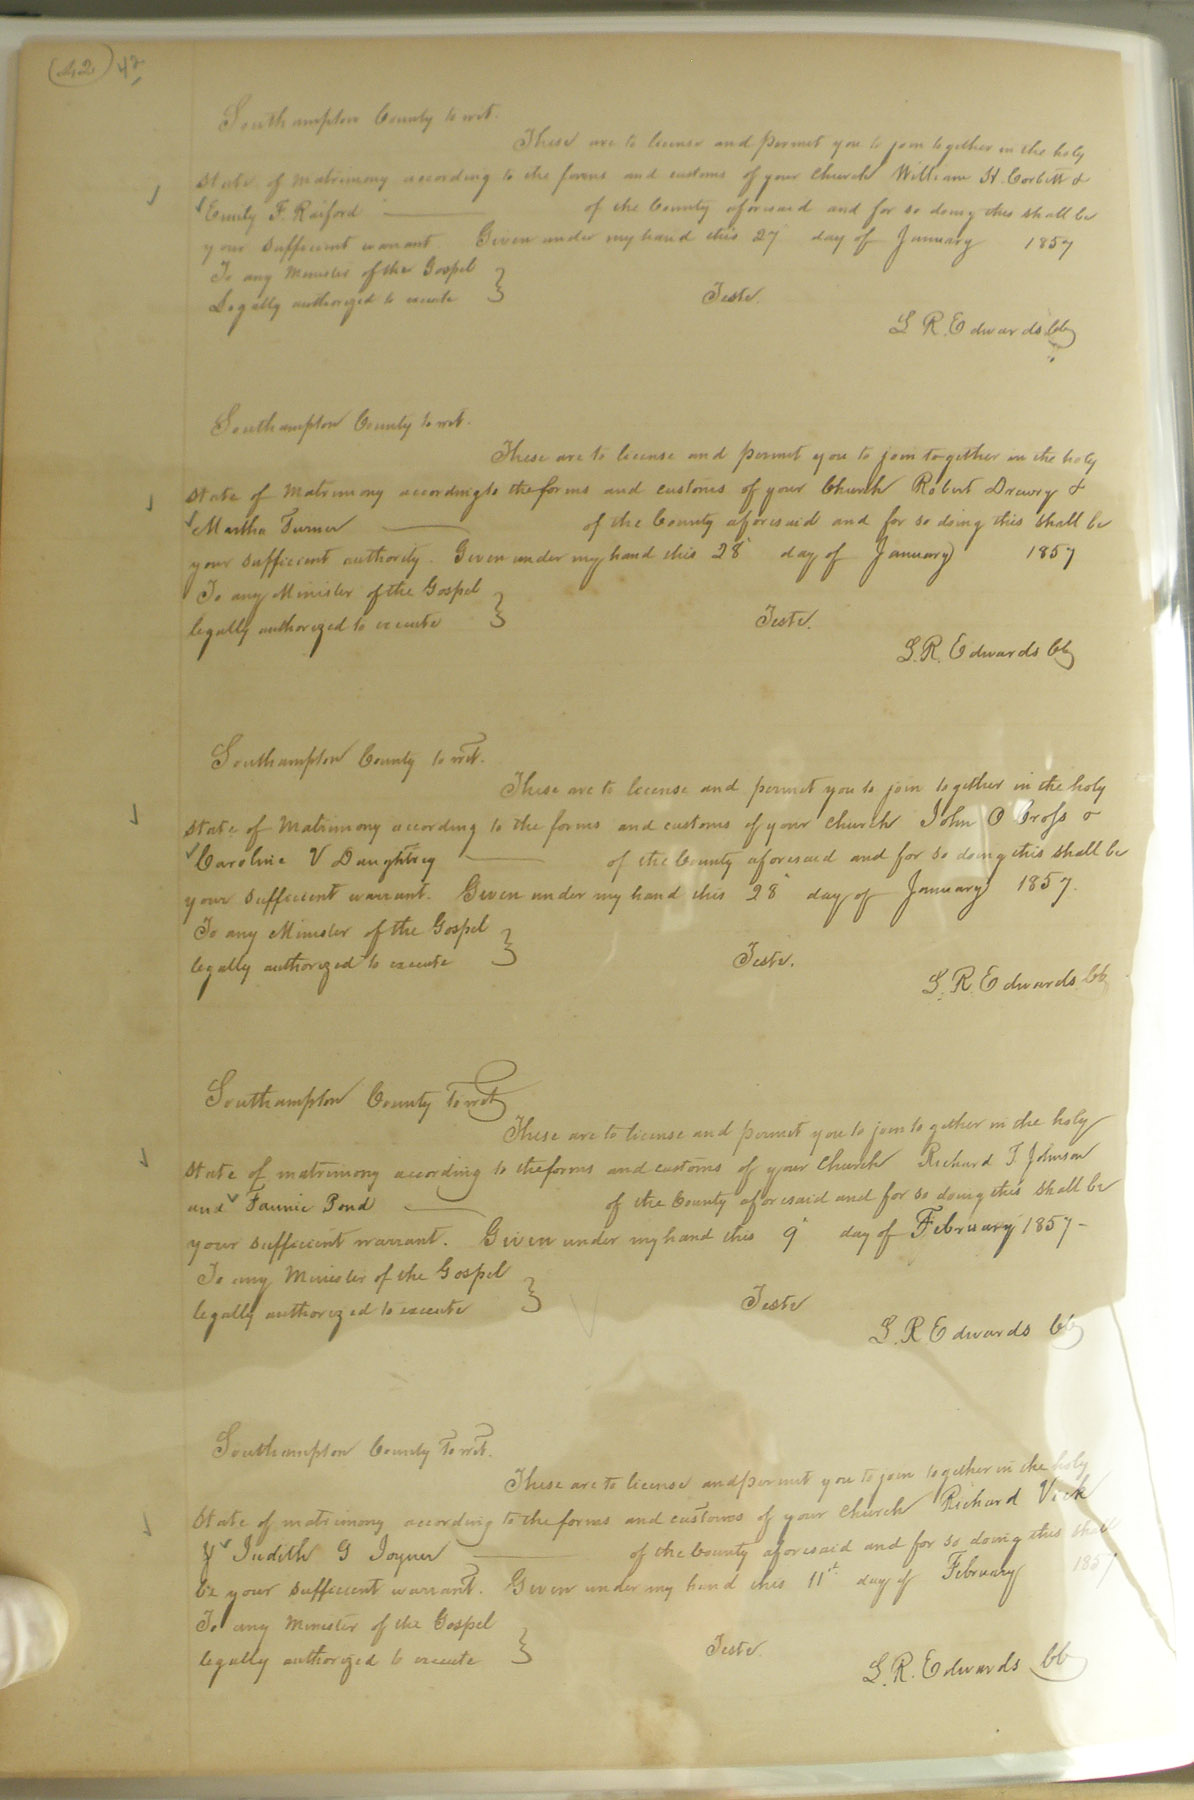 (42) 42
Southampton County to wit.
These are to license and permit you to join together in the holy
state of matrimony according to the forms and customs of your Church William H. Corbitt &
Emily F. Raiford of the County aforesaid and for so doing this shall be
your sufficient warrant. Given under my hand this 27 day of January 1857
To any Minister of the Gospel
Legally authorized to execute } Teste.
L R. Edwards CC
Southampton County to wit.
These are to license and permit you to join together in the holy
state of Matrimony according to the forms and customs of your Church Robert Drewry &
Martha Turner of the County aforesaid and for so doing this shall be
your sufficient authority. Given under my hand this 28 day of January 1857
To any Minister of the Gospel
legally authorized to execute } Teste.
L. R. Edwards CC
Southampton County to wit.
These are to license and permit you to join together in the holy
state of Matrimony according to the forms and customs of your Church John O Cross &
Caroline V Daughtrey of the County aforesaid and for so doing this shall be
your sufficient warrant. Given under my hand this 28 day of January 1857.
To any Minister of the Gospel
legally authorized to execute } Teste.
L. R. Edwards CC
Southampton County To wit
These are to license and permit you to join together in the holy
state of matrimony according to the forms and customs of your Church Richard T. Johnson
and Fannie Pond of the County aforesaid and for so doing this shall be
your sufficient warrant. Given under my hand this 9 day of February 1857-
To any Minister of the Gospel
legally authorized to execute } Teste
L. R. Edwards CC
Southampton County To wit.
These are to license and permit you to join together in the holy
State of matrimony according to the forms and customs of your Church Richard Vick
& Judith G Joyner of the County aforesaid and for so doing this shall
be your sufficient warrant. Given under my hand this 11th day of February 1857
To any Minister of the Gospel
legally authorized to execute } Teste.
L. R. Edwards CC